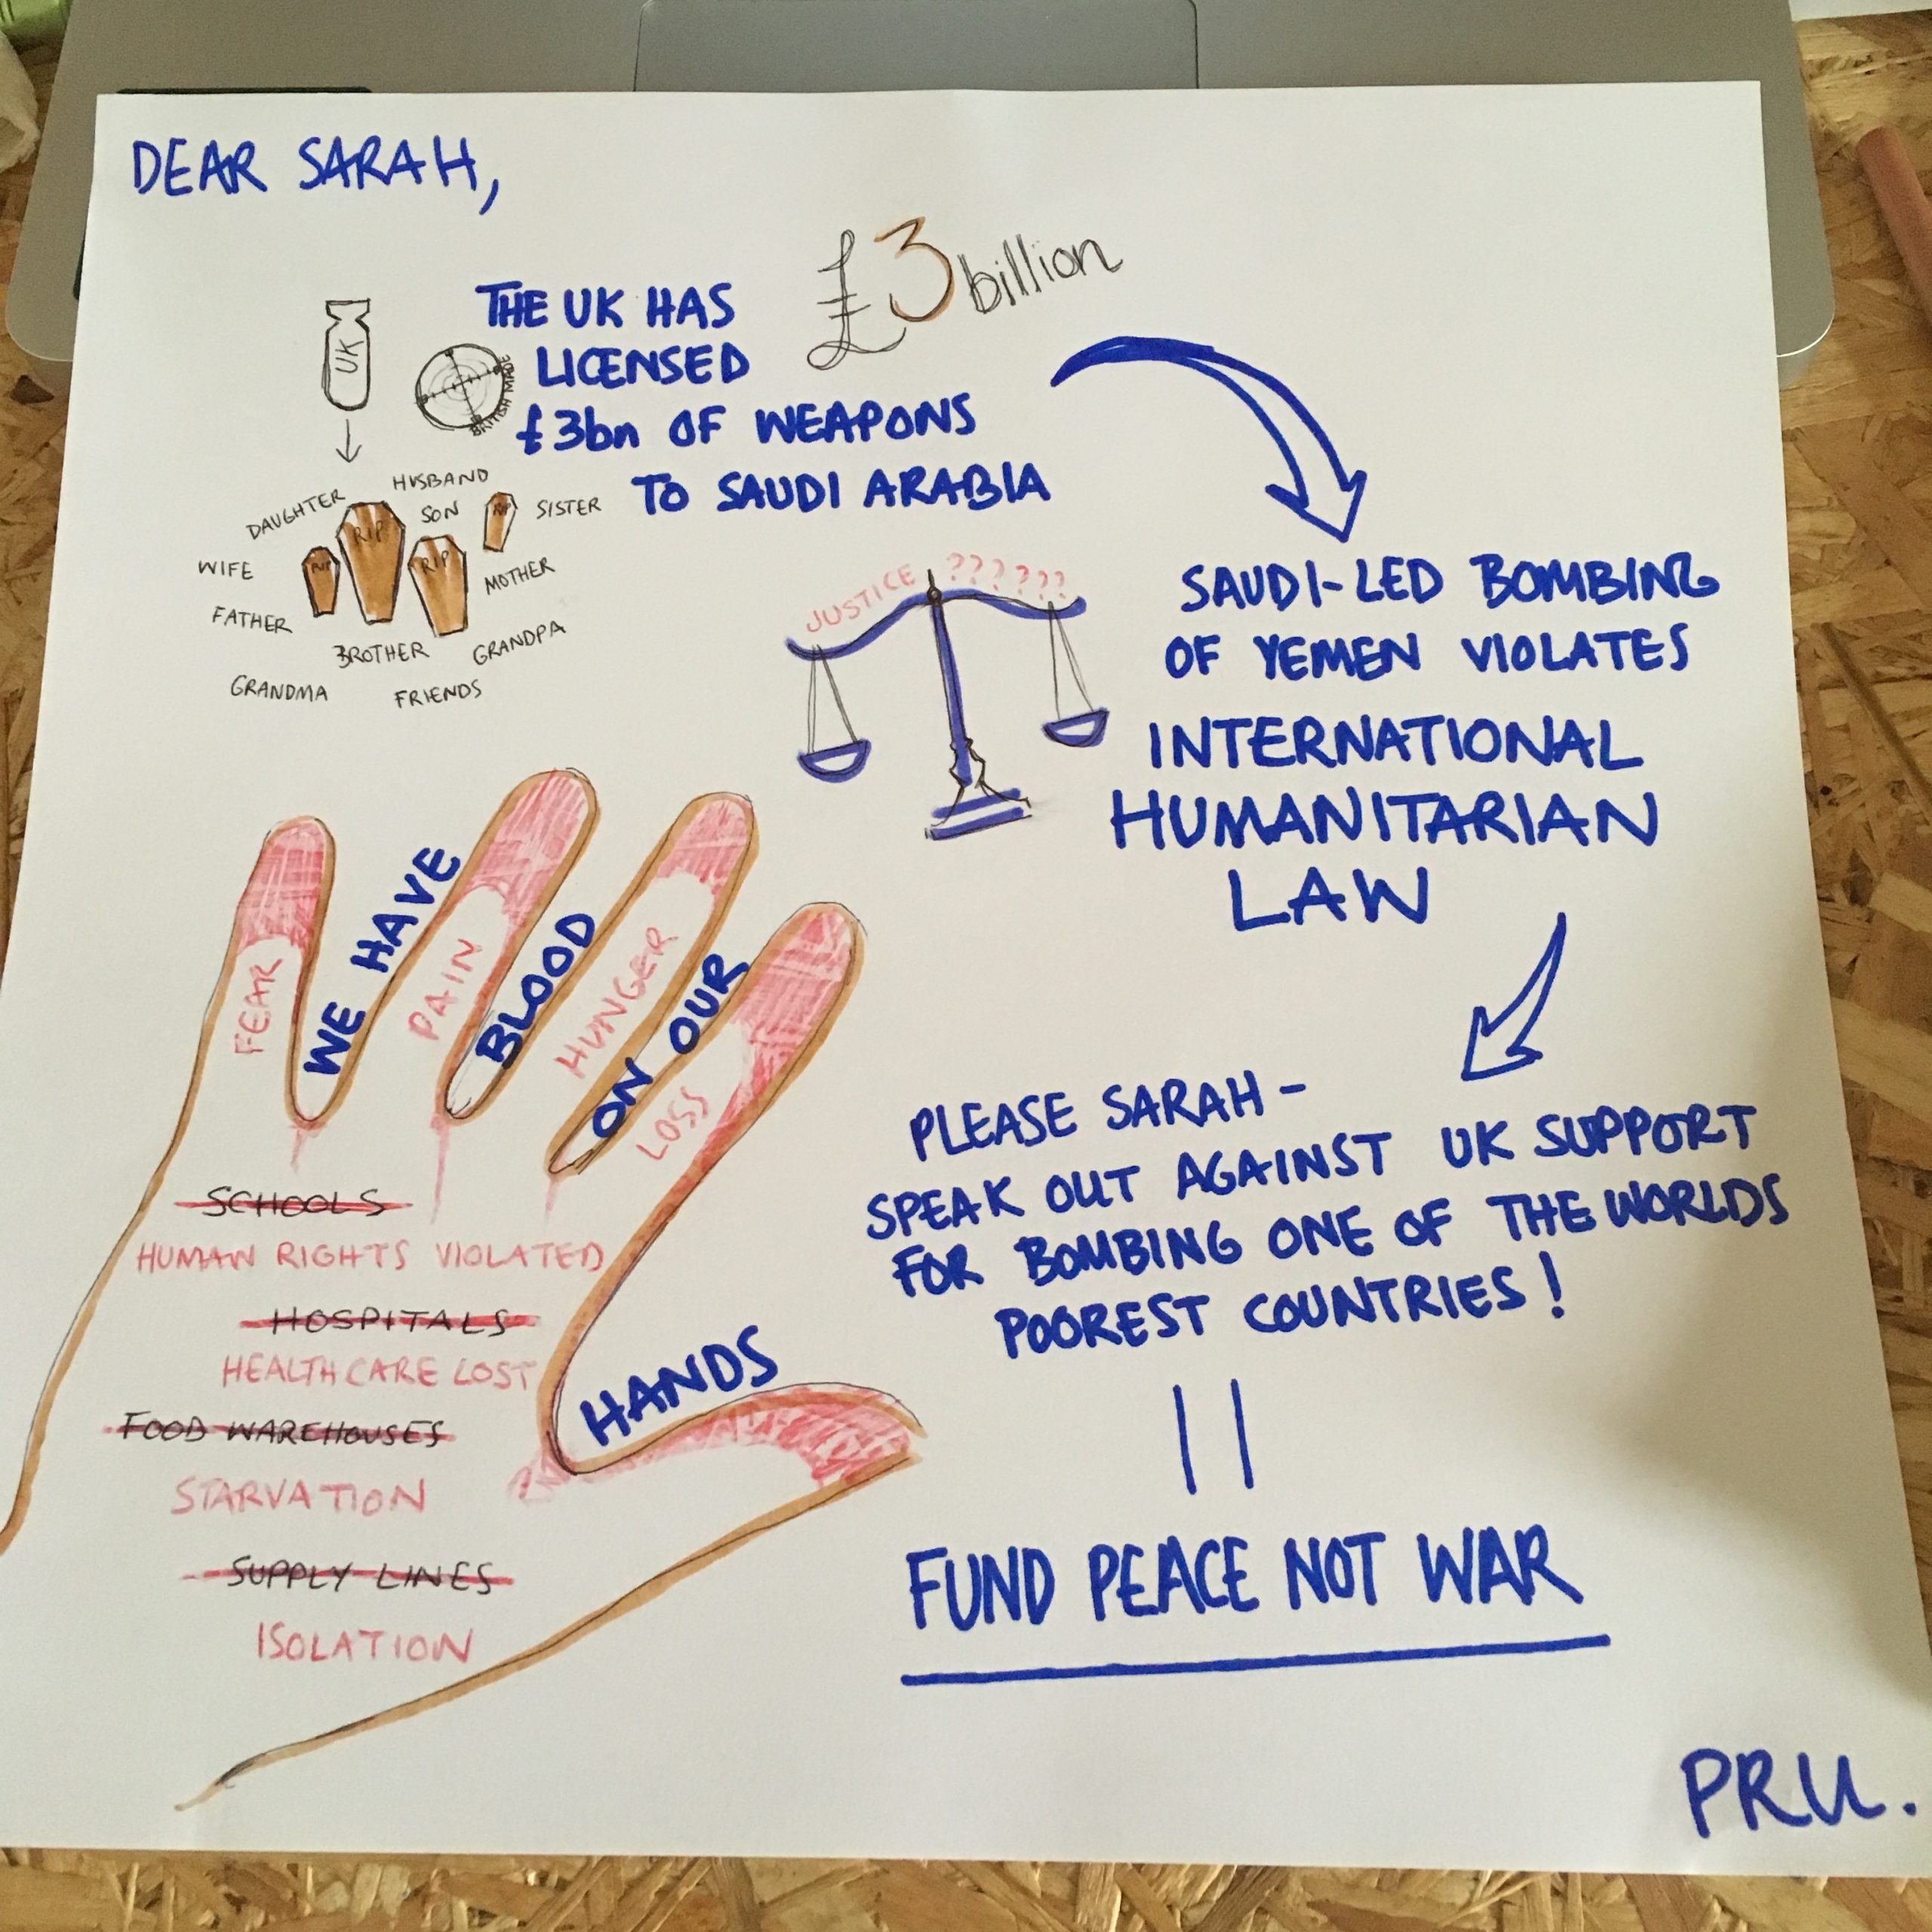 DEAR SARAH,
£3 billion
THE UK HAS
LICENSED
£3bn OF WEAPONS
TO SAUDI ARABIA
UK
BRITISH MADE
HUSBAND
DAUGHTER
SON
SISTER
WIFE
MOTHER
FATHER
BROTHER
GRANDPA
GRANDMA
FRIENDS
RIP
RIP
RIP
RIP
JUSTICE ??????
SAUDI-LED BOMBING
OF YEMEN VIOLATES
INTERNATIONAL
HUMANITARIAN
LAW
WE HAVE
BLOOD
ON OUR
HANDS
FEAR
PAIN
HUNGER
LOSS
SCHOOLS
HUMAN RIGHTS VIOLATED
HOSPITALS
HEALTHCARE LOST
FOOD WAREHOUSES
STARVATION
SUPPLY LINES
ISOLATION
PLEASE SARAH -
SPEAK OUT AGAINST UK SUPPORT
FOR BOMBING ONE OF THE WORLDS
POOREST COUNTRIES!
FUND PEACE NOT WAR
PRU.